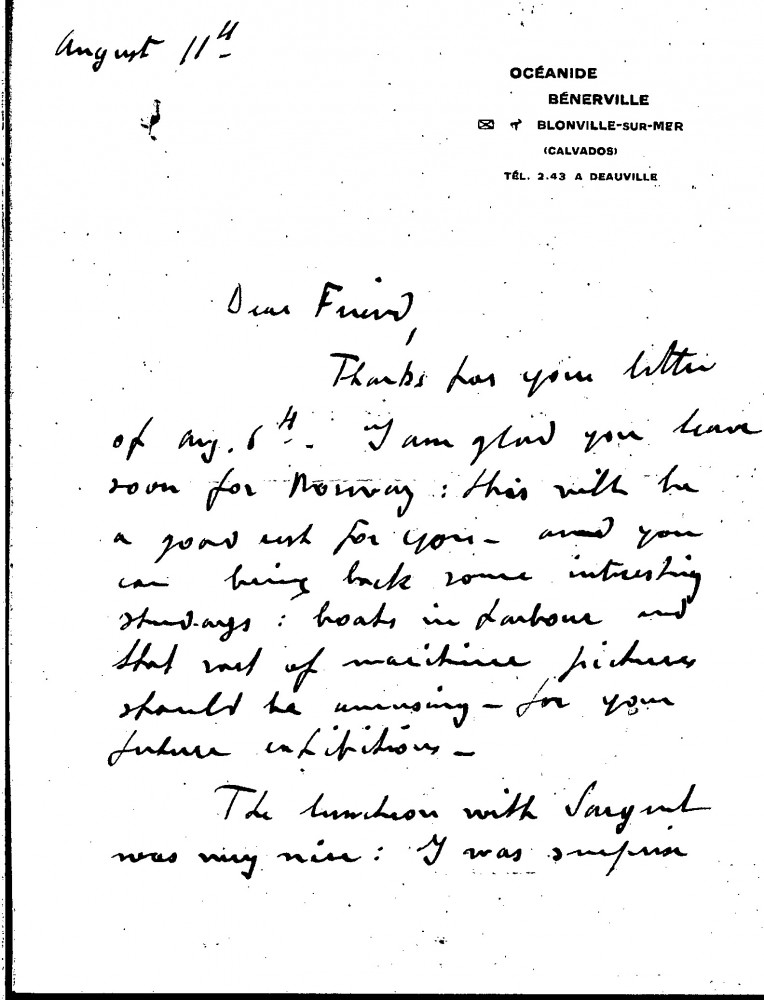 August 11th
OCÉANIDE
BÉNERVILLE
BLONVILLE-SUR-MER
(CALVADOS)
TÉL. 2.43 A DEAUVILLE
Dear Friend,
Thanks for your letter
of Aug. 6th. I am glad you leave
soon for Norway : this will be
a good rest for you - and you
can bring back some interesting
studays : boats in harbour and
that sort of maritime pictures
should be amusing - for your
future exhibitions -
The luncheon with Sargent
was very nice : I was surprise